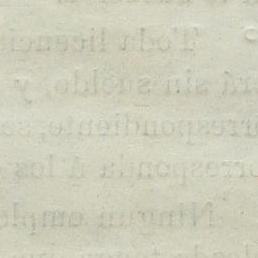 Toda licencia
rá sin sueldo, y
rrespondiente, se
orrespondia á los
Ningun emple